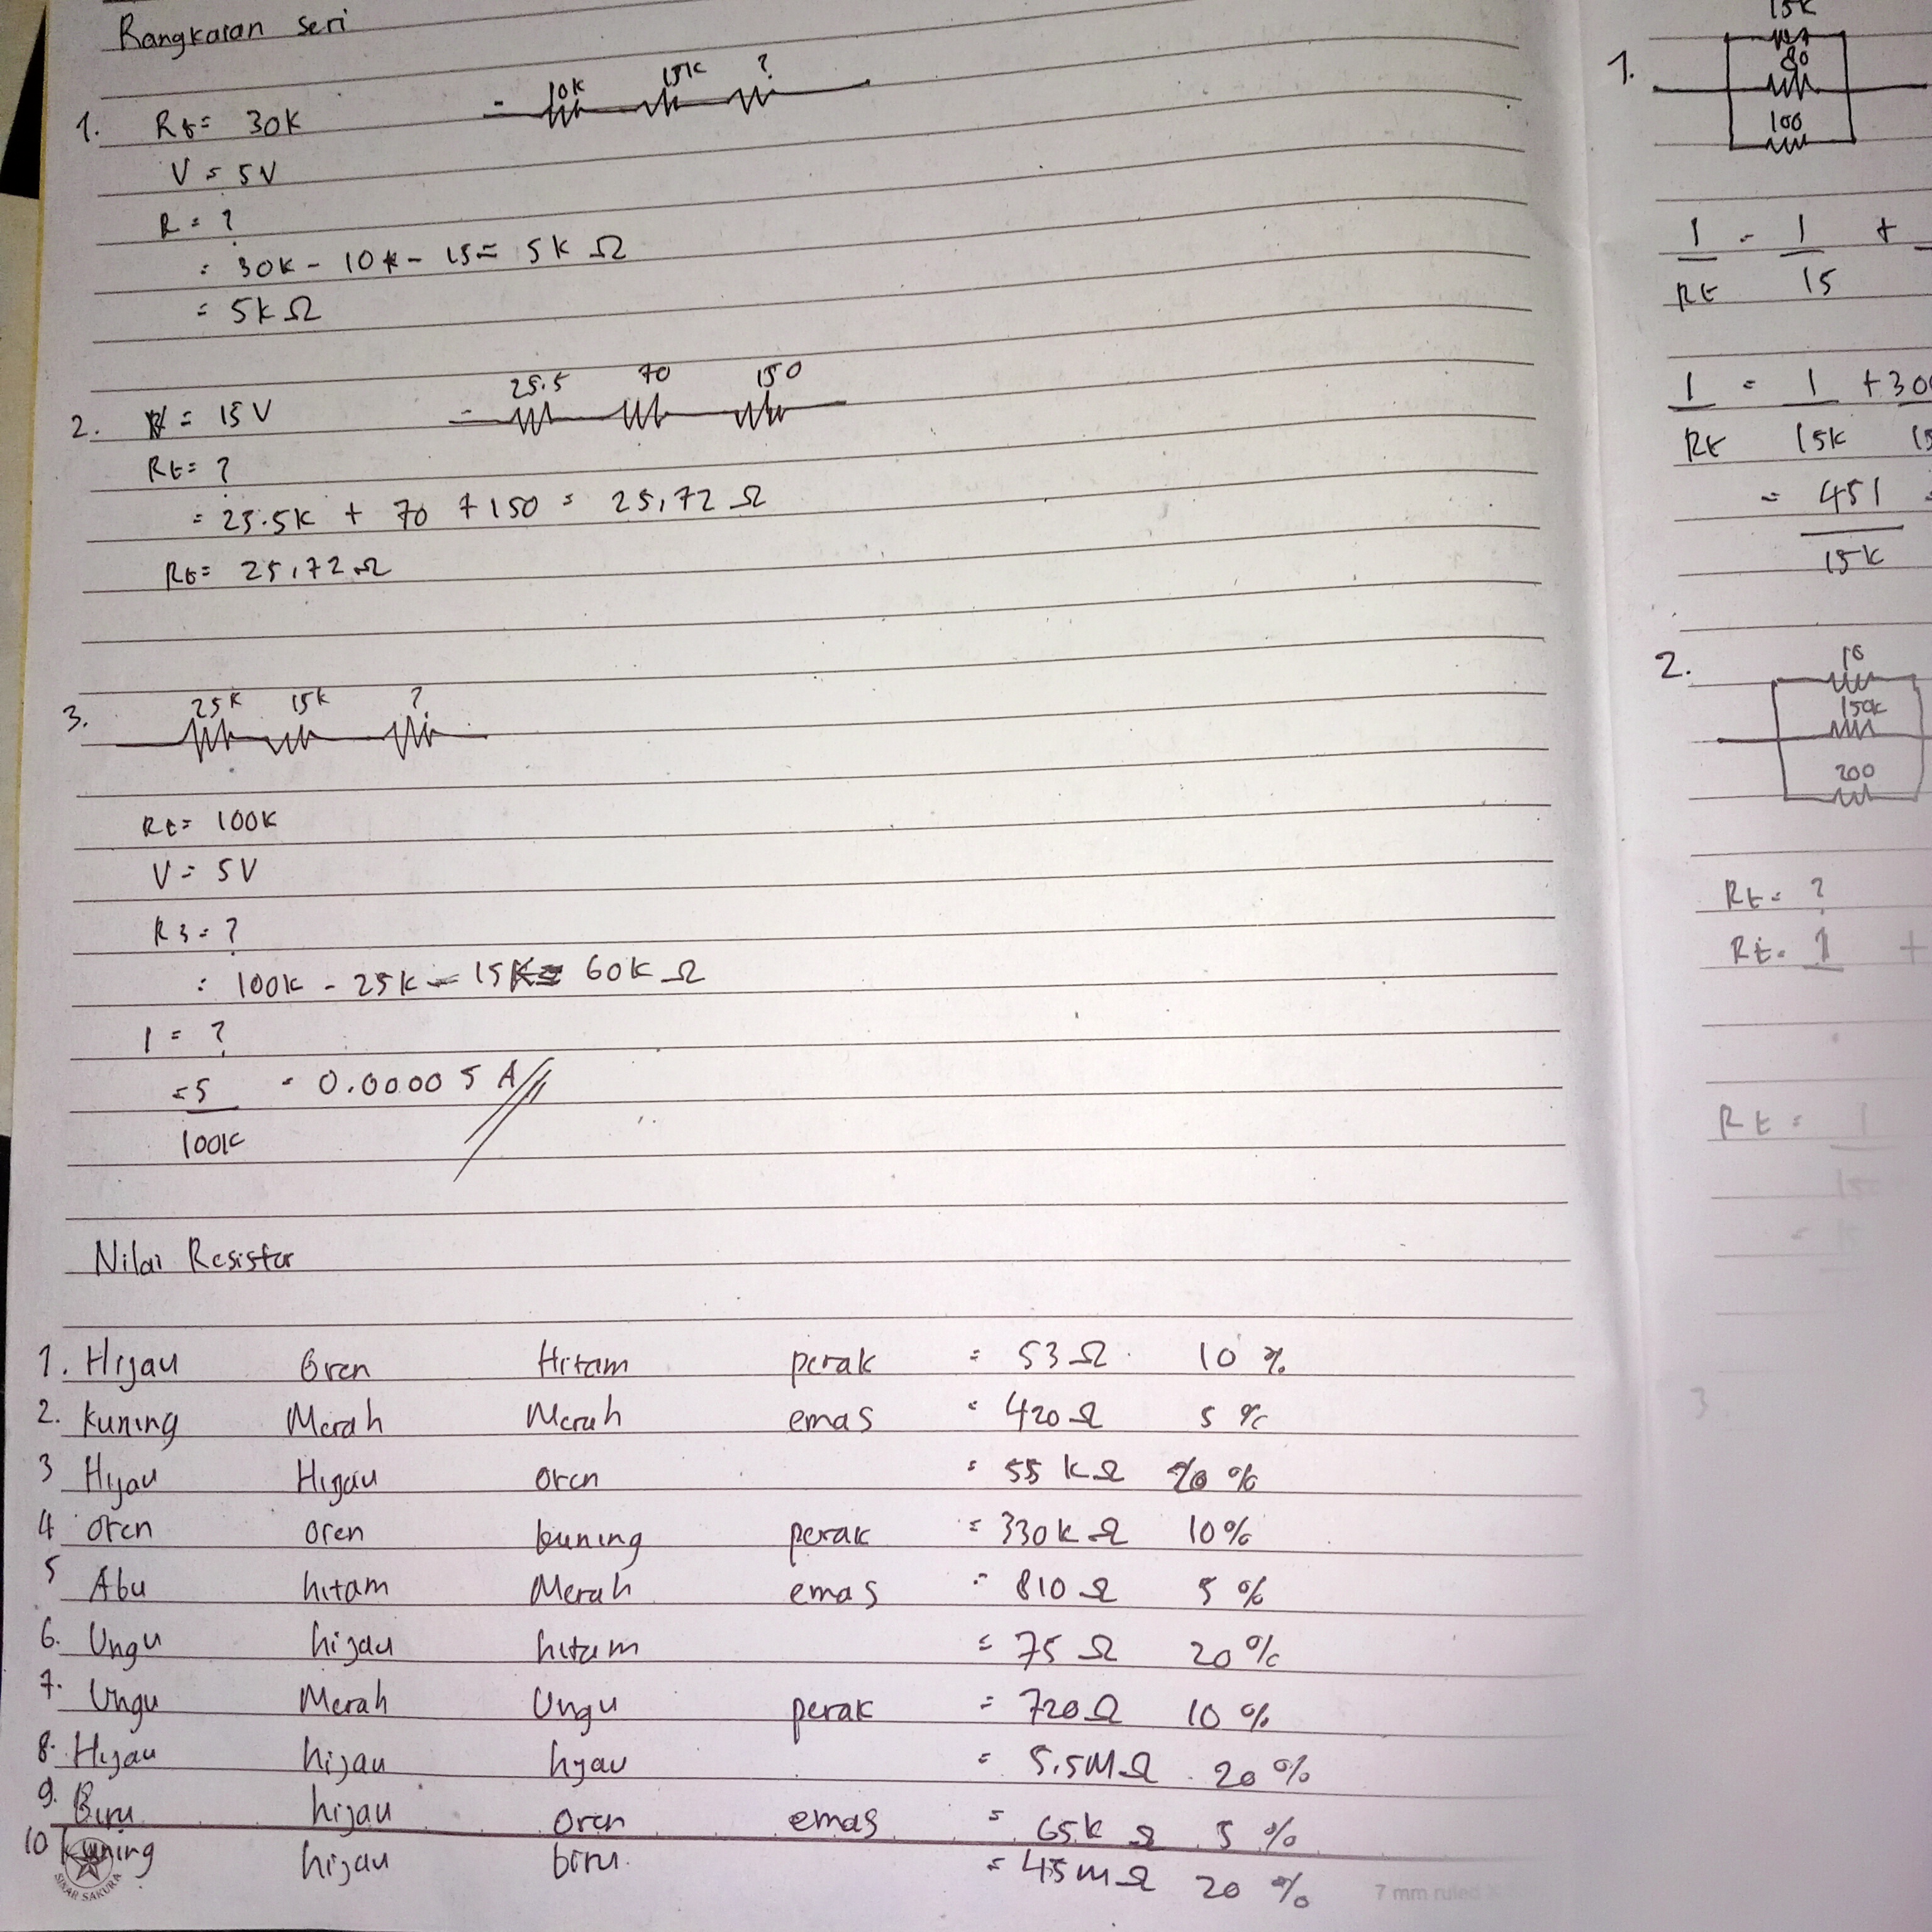 Rangkaian seri
10k 15k ?
1. Rt = 30k
V = 5V
R = ?
= 30k - 10k - 15 = 5k Ω
= 5k Ω
25.5 70 150
2. V = 15V
Rt = ?
= 25.5k + 70 + 150 = 25,72 Ω
Rt = 25,72 Ω
3. 25k 15k ?
Rt = 100k
V = 5V
R3 = ?
= 100k - 25k - 15k = 60k Ω
I = ?
= 5 = 0.00005 A
100k
Nilai Resistor
1. Hijau Oren Hitam perak = 53 Ω 10 %
2. kuning Merah Merah emas = 420 Ω 5 %
3 Hijau Hijau oren = 55 kΩ 20 %
4 oren oren kuning perak = 330k Ω 10%
5 Abu hitam Merah emas = 810 Ω 5 %
6. Ungu hijau hitam = 75 Ω 20%
7. Ungu Merah Ungu perak = 720 Ω 10 %
8. Hijau hijau hijau = 5.5MΩ 20 %
9. Biru hijau oren emas = 65k Ω 5 %
10 kuning hijau biru = 45mΩ 20 %
SINAR SAKURA
7 mm ruled
15k
1. 80
100
1 = 1 +
Rt 15
1 = 1 + 30
Rt 15k 15
= 451 =
15k
2. 10
150k
200
Rt = ?
Rt = 1 +
Rt = 1
3.